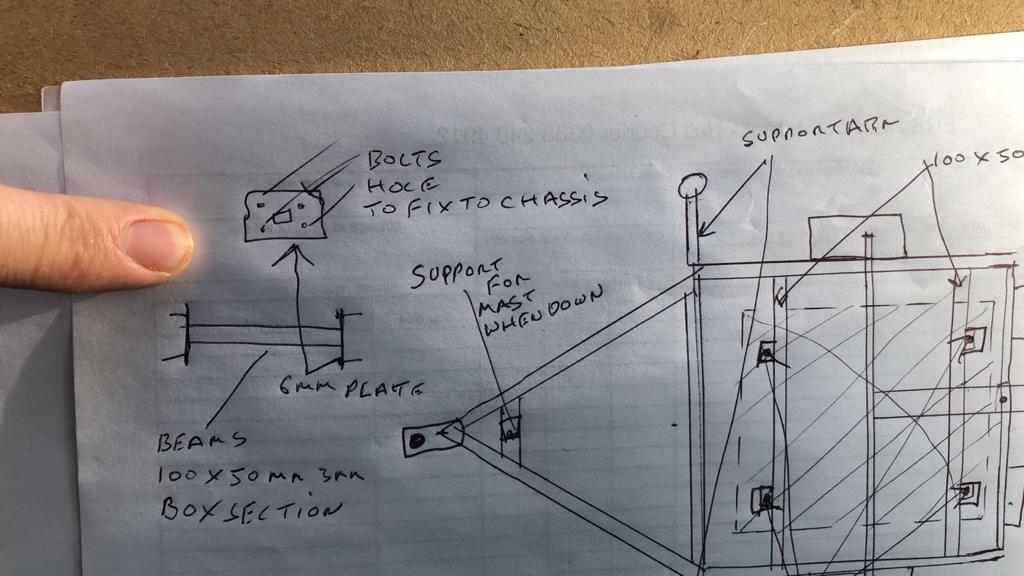 BOLTS
HOLE
TO FIX TO CHASSIS
SUPPORT ARM
100 X 50
SUPPORT
FOR
MAST
WHEN DOWN
6MM PLATE
BEAMS
100 X 50 MM 3MM
BOX SECTION